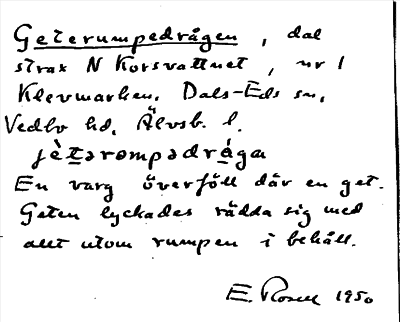 Geterumpedrågen, dal
strax N Korsvattnet, nr 1
Klevmarken. Dals-Eds sn,
Vedbo hd, Älvsb. l.
jètərəmpədrågа
En varg överföll där en get.
Geten lyckades rädda sig med
allt utom rumpen i behåll.
E. Rosell 1950